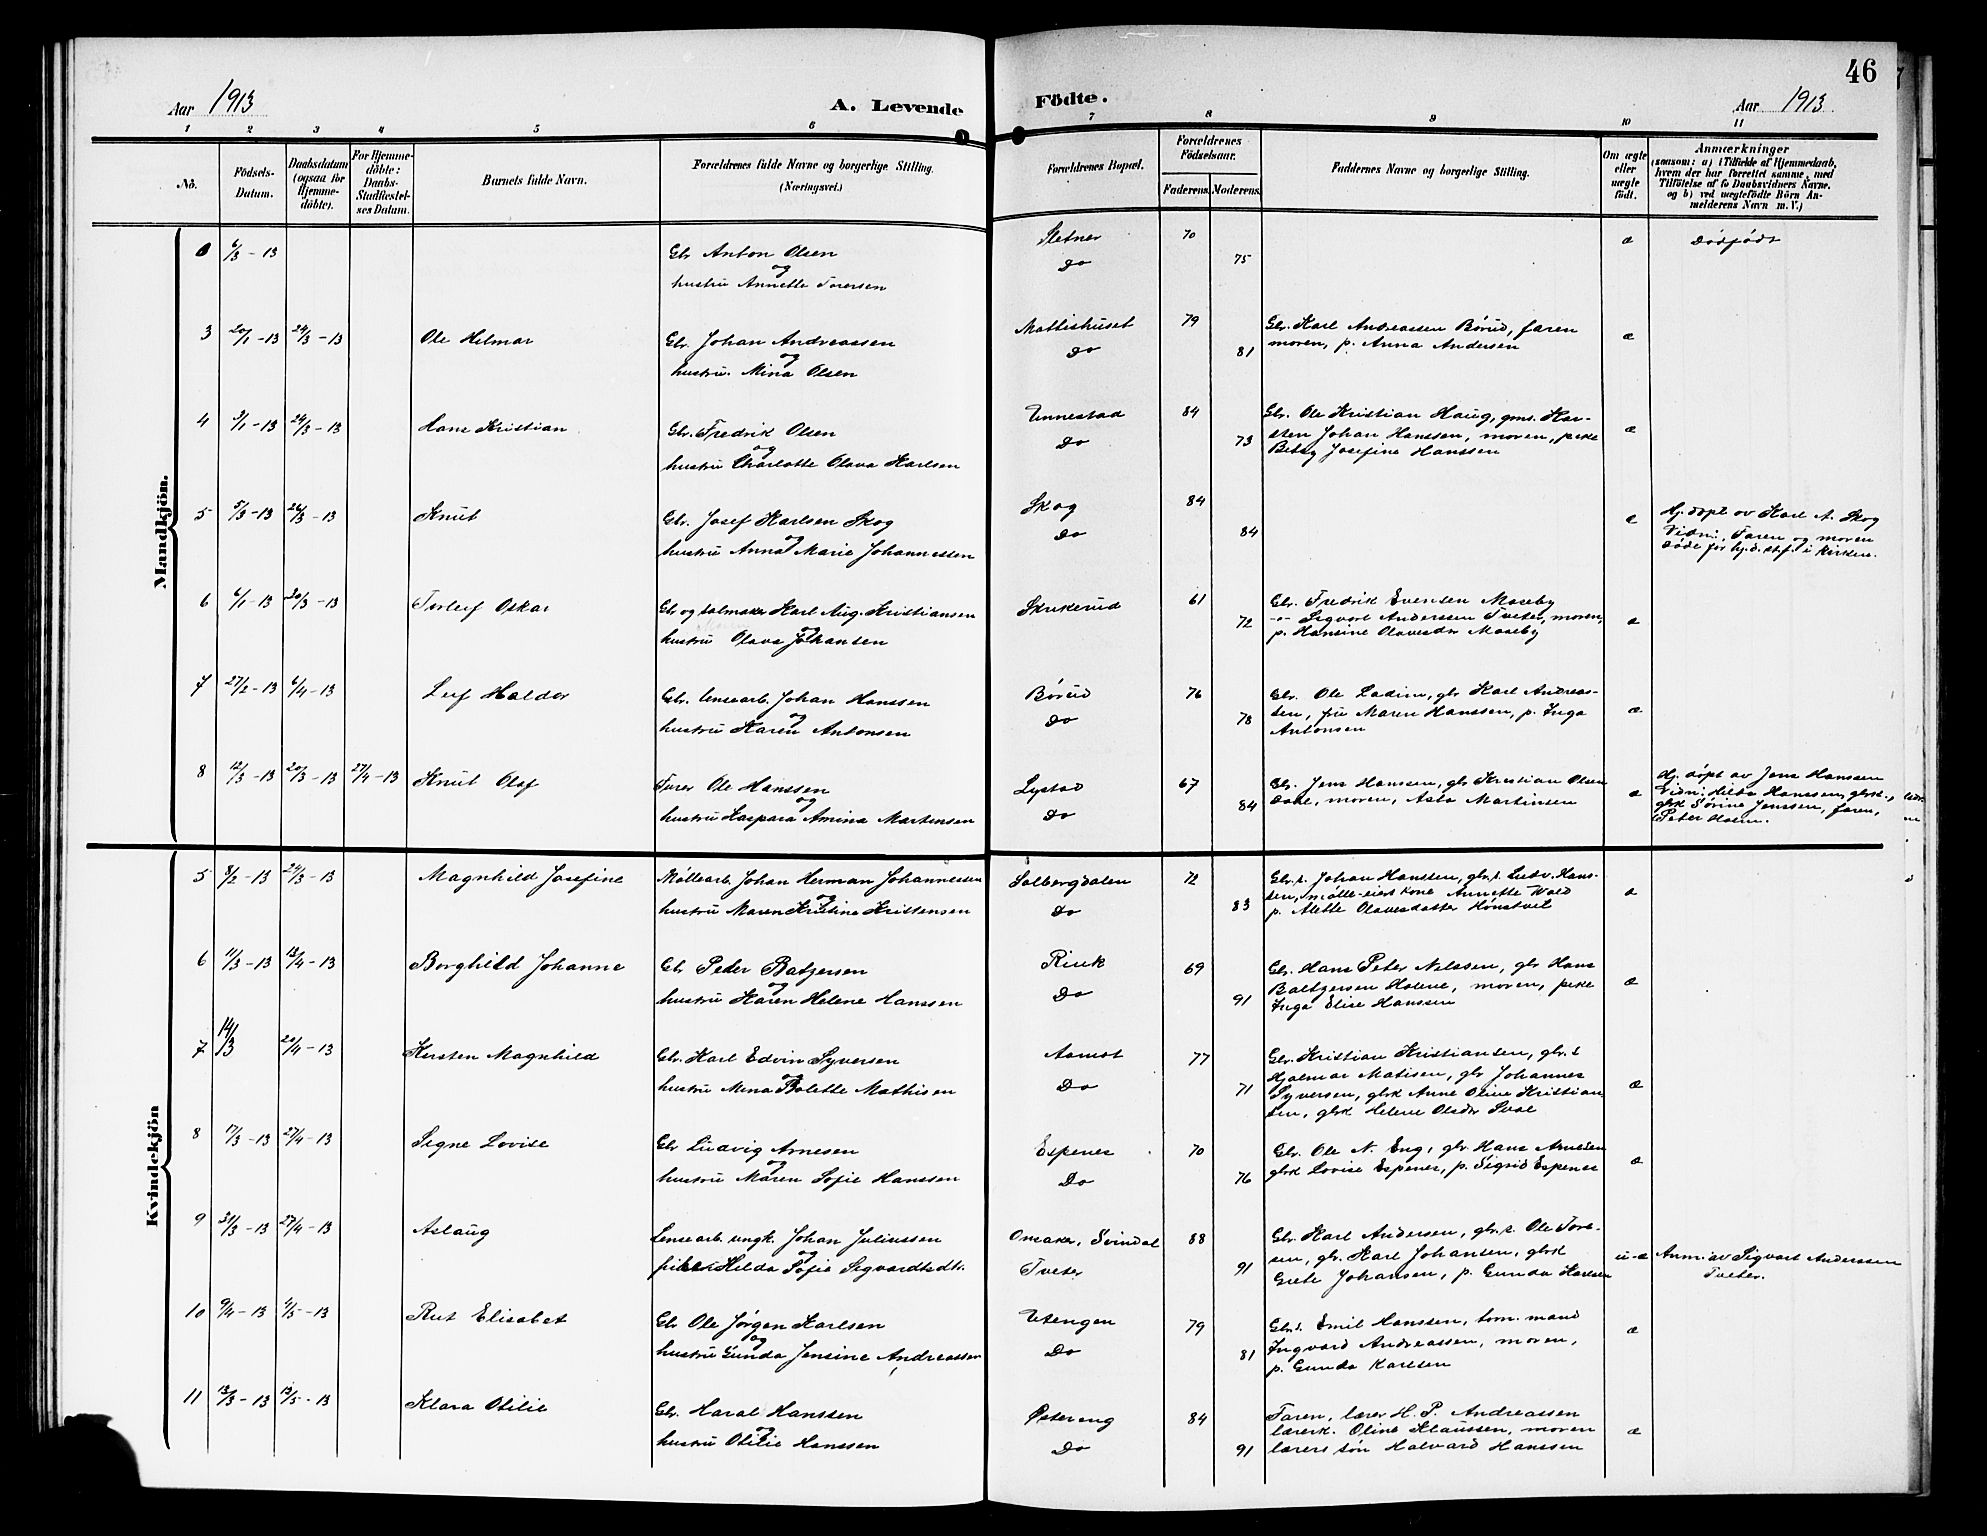 46
Aar 1913
A. Levende Födte.
Aar 1913
1 2 3 4 5 6 7 8 9 10 11
No.
Födsels-
Datum.
Daabsdatum
(ogsaa for
Hjemme-
döbte).
For Hjemme-
döbte:
Daabs-
Stadfæstel-
ses Datum.
Barnets fulde Navn.
Forældrenes fulde Navne og borgerlige Stilling.
(Næringsvei.)
Forældrenes Bopæl.
Forældrenes
Födselsaar.
Faderens. Moderens.
Faddernes Navne og borgerlige Stilling.
Om ægte
eller
uægte
født.
Anmærkninger
(saasom: a) i Tilfælde af Hjemmedaab,
hvem der har forrettet samme, med
Tilföielse af to Daabsvidners Navne,
og b) ved uægtefödte Börn An-
melderens Navn m. V.)
Mandkjön.
0 6/3-13
Gbr Anton Olsen
og
hustru Annette Torersen
Sletner 70
Do 75
æ
Dödfödt
3 20/1-13 24/3-13 Ole Hilmar
Gbr. Johan Andreassen
og
hustru. Mina Olsen
Mattishuset 79
Do 81
Gbr. Karl Andreassen Börud, faren
moren, p. Anna Andersen
æ
4 3/1-13 24/3-13 Hans Kristian
Gbr. Fredrik Olsen
og
hustru Charlotte Olava Karlsen
Unnestad 84
Do 73
Gbr. Ole Kristian Haug, gms. Kar-
sten Johan Hanssen, moren, pike
Betsy Josefine Hanssen
æ
5 5/3-13 24/3-13 Knut
Gbr. Josef Karlsen Skog
og
hustru Anna Marie Johannessen
Skog 84
Do 84
æ
Hj. döpt av Karl A. Skog
Vidni: Faren og moren
Döde for hj.d. stf. i kirken.
6 6/1-13 20/3-13 Torleif Oskar
Gbr og salmaker Karl Aug. Kristiansen
og
hustru Olava Johansen
Skukerud 61
72
Gbr. Fredrik Evensen Moseby
-"- Sigvart Anderssen Tveter, moren,
p. Hansine Olavesdtr Moseby
æ
7 27/2-13 6/4-13 Leif Haldor
Gbr. lensearb. Johan Hanssen
og
hustru Karen Antonsen
Börud 76
Do 78
Gbr. Ole Ladim, gbr Karl Andreas-
sen, fru Maren Hanssen, p. Inga
Antonsen
æ
8 12/3-13 20/3-13 27/4-13 Knut Olaf
Ole Hanssen
og
hustru Kaspara Amina Martinsen
Lystad 67
Do 84
Gbr. Jens Hanssen, gbr Kristian Olsen
moren, Asta Martinsen
æ
Hj. döpt av Jens Hanssen
Vidni: Hilda Hanssen, gbrk.,
gbrk Sörine Jenssen, faren,
Peter Holm.
Kvindekjön
5 8/2-13 24/3-13 Magnhild Josefine
Möllearb. Johan Herman Johannessen
og
hustru Maren Kristine Kristensen
Solbergdalen 72
Do 83
Gbr.s. Johan Hanssen, gbr.s. Ludv. Hans-
sen, mölle-eiers kone Annette Wold
p. Alette Olavesdatter Hönstvet
æ
6 11/3-13 13/4-13 Borghild Johanne
Gbr Peder Baltzersen
og
hustru Karen Helene Hanssen
Riuk 69
Do 91
Gbr. Hans Peter Nilssen, gbr Hans
Baltzersen Holene, moren, pike
Inga Elise Hanssen
æ
7 14/3 20/4-13 Kirsten Magnhild
Gbr. Karl Edvin Syversen
og
hustru Mina Bolette Mathisen
Aamot 77
Do 71
Gbr. Kristian Kristiansen, gbr.s
Hjalmar Matisen, gbr Johannes
Syversen, gbrk Anne Oline Kristian
sen, gbrk Helene Olsdtr Svae
æ
8 17/3-13 27/4-13 Signe Lovise
Gbr Ludvig Arnesen
og
hustru Maren Sofie Hanssen
Espenes 70
Do 76
Gbr. Ole N. Eng, gbr Hans Arnesen
gbrk Lovise Espenes, p. Sigrid Espenes
æ
9 31/3-13 27/4-13 Aslaug
Lensearb. ungk. Johan Juliussen
og
pike Hilda Sofie Sigvardtsdtr.
Omaker, Svindal 88
Tveter 91
Gbr. Karl Andersen, gbr.s. Ole Tore-
sen, gbr. Karl Johansen, gbrk
Grete Johansen, p. Gunda Karlsen
u-æ
Anm. av Sigvart Anderssen
Tveter.
10 9/4-13 1/5-13 Rut Elisabet
Gbr Ole Jörgen Karlsen
og
hustru Gunda Jensine Andreassen
Utengen 79
Do 81
Gbr.s. Emil Hanssen, tom. mand
Ingvard Andreassen, moren,
p. Gunda Karlsen
æ
11 13/3-13 13/5-13 Klara Otilie
Gbr. Haral Hanssen
og
hustru Otilie Hanssen
Ostereng 84
Do 91
Faren, lærer H. P. Andreassen
lærerk. Oline Klaussen, moren
lærers sön Halvard Hanssen
æ